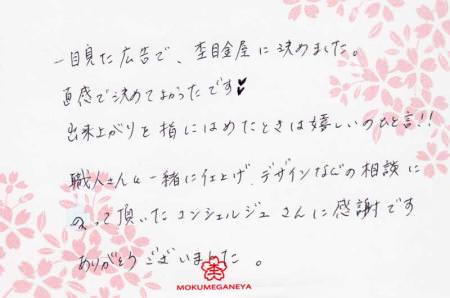 一目見た広告で、杢目金屋に決めました。
直感で決めてよかったです♥
出来上がりを指にはめたときは嬉しいのひと言!!
職人さんと一緒に仕上げ、デザインなどの相談に
のって頂いたコンシェルジュさんに感謝です
ありがとうございました。
MOKUMEGANEYA